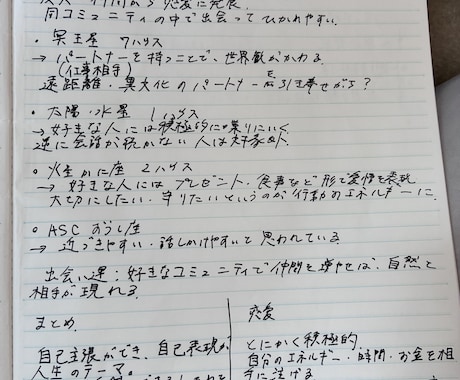 同コミュニティの中で出会って ひかれやすい.
・冥王星 7ハウス
→ パートナーを持つことで、世界観がかわる
(仕事相手)
遠距離・異文化の パートナーを引き寄せがち?
・太陽・水星 1ハウス
→ 好きな人には積極的に喋りにいく
逆に会話が続かない人は対象外
・火星かに座 2ハウス
→ 好きな人には プレゼント・食事など 形で愛情を表現
大切にしたい・守りたいというのが行動のエネルギーに.
・ASC おうし座
→ 近づきやすい・話しかけやすいと 思われている
出会い運:好きなコミュニティで仲間を増やせば、自然と
相手が現れる
まとめ
自己主張ができ、自己表現が
人生のテーマ。
恋愛
とにかく積極的
自分のエネルギー・時間・お金を相
手に注げる